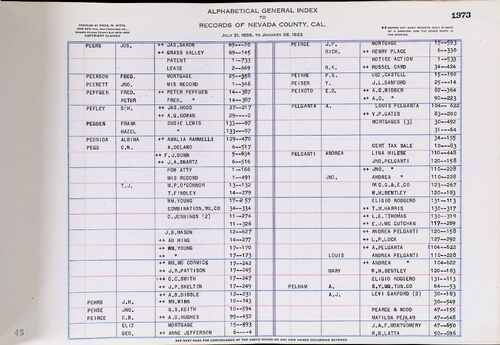 ALPHABETICAL GENERAL INDEX
TO
RECORDS OF NEVADA COUNTY, CAL.
JULY 21, 1856, TO JANUARY 28, 1922
1373
COPYRIGHT CLAIMED
PEERS JOS. ++ JAS.SAXON 69--70
++ GRASS VALLEY 69--145
PATENT 1--733
LEASE 2--669
PEERSON FRED. MORTGAGE 25--358
PEERETT JNO. MIS RECORD 1--346
PEFFGEN FRED. ++ PETER PEFFGEN 14--387
PETER FRED. ++ " 14--387
PEFLEY STH. ++ JAS.HOOD 27--217
++ A.G.COHAN 29--2
PEGDEN FRANK SUSIE LEWIS 133--87
HAZEL " 133--87
PEDROIA ALBINA ++ AMALIA RAMMELLI 129--470
PEGG C.N. A.DELAND 6--517
++ F.J.DUNN 6--534
++ J.A.SWARTZ 6--516
POW ATTY 1--166
MIS RECORD 1--491
T.J. M.P.O'CONNOR 13--132
T.FINDLEY 14--279
WM.YOUNG 17--257
COMBINATION,MG.CO 34--334
C.JENNINGS (2) 11--274
11--326
J.B.MASON 12--627
++ AH HING 14--277
++ WM.YOUNG 17--170
++ " 17--173
++ WM.MC CORMICK 17--242
++ J.R.PATTISON 17--245
++ C.C.SMITH 17--247
++ J.P.SKELTON 17--249
++ A.B.DIBBLE 6--231
PEHRS J.H. ++ WM.WINN 10--143
PEHSE JNO. ++ G.S.KEITH 10--594
PEIRCE C.N. ++ A.D.HUGHES 99--458
ELIZ MORTGAGE 15--593
GEO. ++ ANNE JEFFERSON 6--4
PEIRCE J.P. MORTGAGE 15--593
RICH. ++ HENRY PLACE 6--330
NOTICE ACTION 1--533
H.K. ++ RUSSEL CARD 34--424
PEIRRE P.S. GUD.CASTELL 15--190
PEISER Y. J.L.SANFORD 25--14
PEIXOTO E.D. ++ A.G.WIDBER 87--364
++ A.C. " 90--223
PELGANTA A. LOUIS PELGANTA 104--622
++ V.P.GATES 83--280
MORTGAGES (3) 30--492
31--64
CERT TAX SALE 10--83
PELGANTI ANDREA LINA MILESE 110--448
JNO.PELGANTI 120--158
++ JNO. " 110--228
JNO. ANDREA " 110--228
W.W.BENTLEY 120--183
ELIGIO ROGGERO 131--113
++ T.U.HARRIS 130--317
++ L.E.TTHOMAS 130--319
++ E.J.MC CUTCHAN 117--289
++ ANDREA PELGANTI 120--158
++ L.P.LOCK 127--292
++ A.PELGANTA 104--622
LOUIS ANDREA PELGANTI 110--228
++ ANDREA " 104--622
MARY R.H.BENTLEY 120--183
ELIGIO ROGGERO 131--113
PELHAM A. S.Y.MG.TUN.CO 84--53
A.J. LEVI SANFORD (2) 30--183
30--549
PEARCE & WOOD 47--155
MATILDA FEHLH 47--648
J.A.F.MONTGOMERY 47--650
R.R.LATTA 50--596
45
SEE NEXT PAGE FOR CONTINUANCE OF THE ABOVE NAMES OR ANY NEW NAMES COLLATING BETWEEN